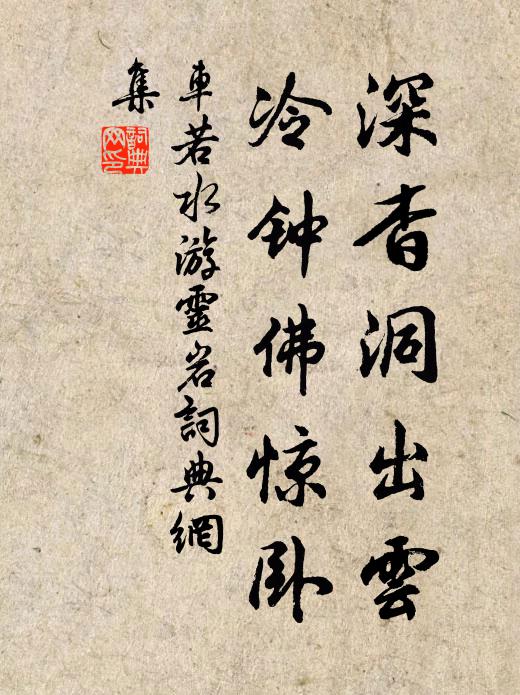 深杳洞出雲
冷钟佛惊卧
車若水游靈岩詞典網
集
詞典
网印